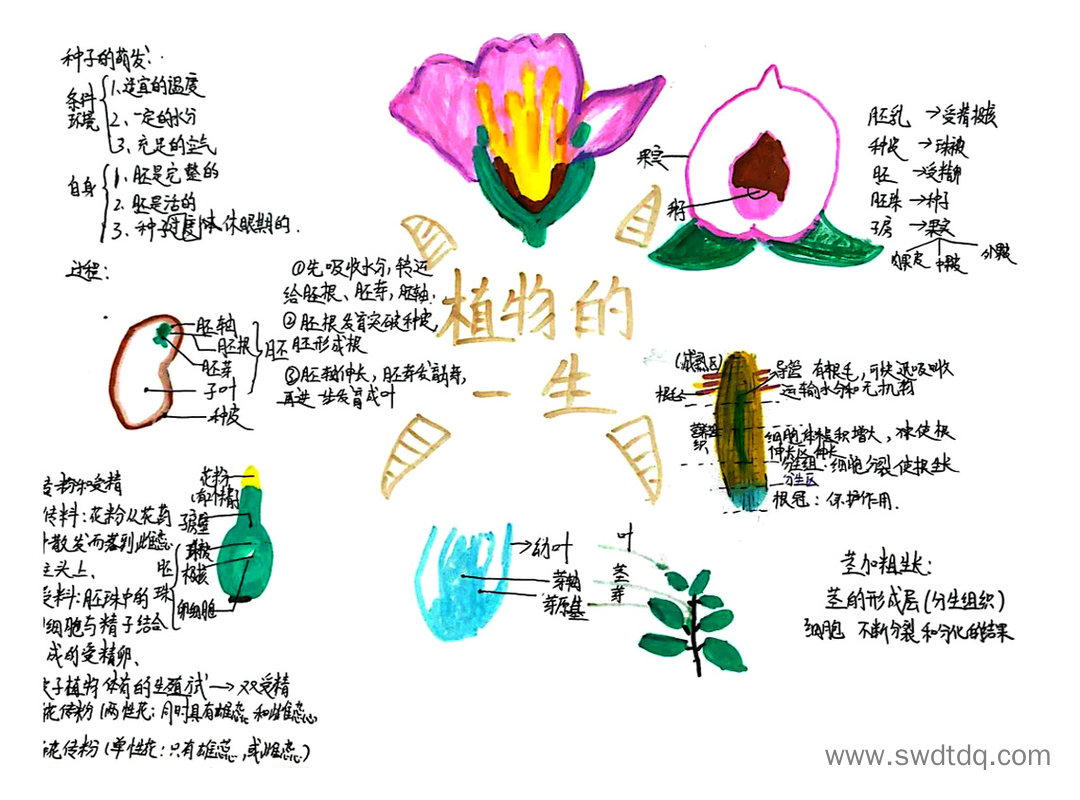 种子的萌发:
条件
环境
1.适宜的温度
2、一定的水分
3、充足的空气
自身
1.胚是完整的
2.胚是活的
3、种子 休眠期的.
过程:
①先吸收水分,转运
给胚根、胚芽,胚轴.
②胚根发育突破种皮,
胚形成根
③胚轴伸长,胚芽发
再进一步发育成叶
胚轴
胚根
胚芽
子叶
种皮
胚
植物的
一生
果实
籽
胚乳→受精极核
种皮→珠被
胚→受精卵
胚珠→种子
子房→果实
外果皮 中果皮 内果皮
(成熟区)
根毛
导管 有根毛,可快速吸收
运输水分和无机物
细胞体积增大,使根
伸长区 伸长
分生组:细胞分裂使根生长
分生区
根冠:保护作用.
传粉和受精
传粉:花粉从花药
散发而落到雌蕊
柱头上、
受粉:胚珠中的
卵细胞与精子结合
成的受精卵、
花粉
(有精)
子房壁
珠被
极核
卵细胞
胚珠
子植物体有的生殖式→双受精
花传粉(两性花:同时具有雄蕊和雌蕊
花传粉(单性花:只有雄蕊,或雌蕊)
幼叶
芽轴
芽原基
叶
茎
芽
茎加粗生长:
茎的形成层(分生组织)
细胞 不断分裂和分化的结果
www.swdtdq.com